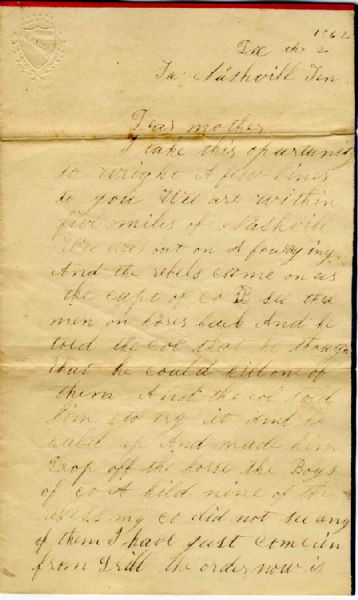 1862
Dec the 2
Nashvill Ten
Dear mother
I take this opartunity
to wright A few lines
to you We are within
five miles of Nashvill
We was out on A
And the rebels came on us
the capt of co D see three
men on hores back And he
told the col that he thought
that he could kill on of
them And the col told
him to try it And he
hald up And made him
Drop off the horse the Boys
of co A kild nine of the
my co did not see any
of them I have just come in
from Drill the order now is